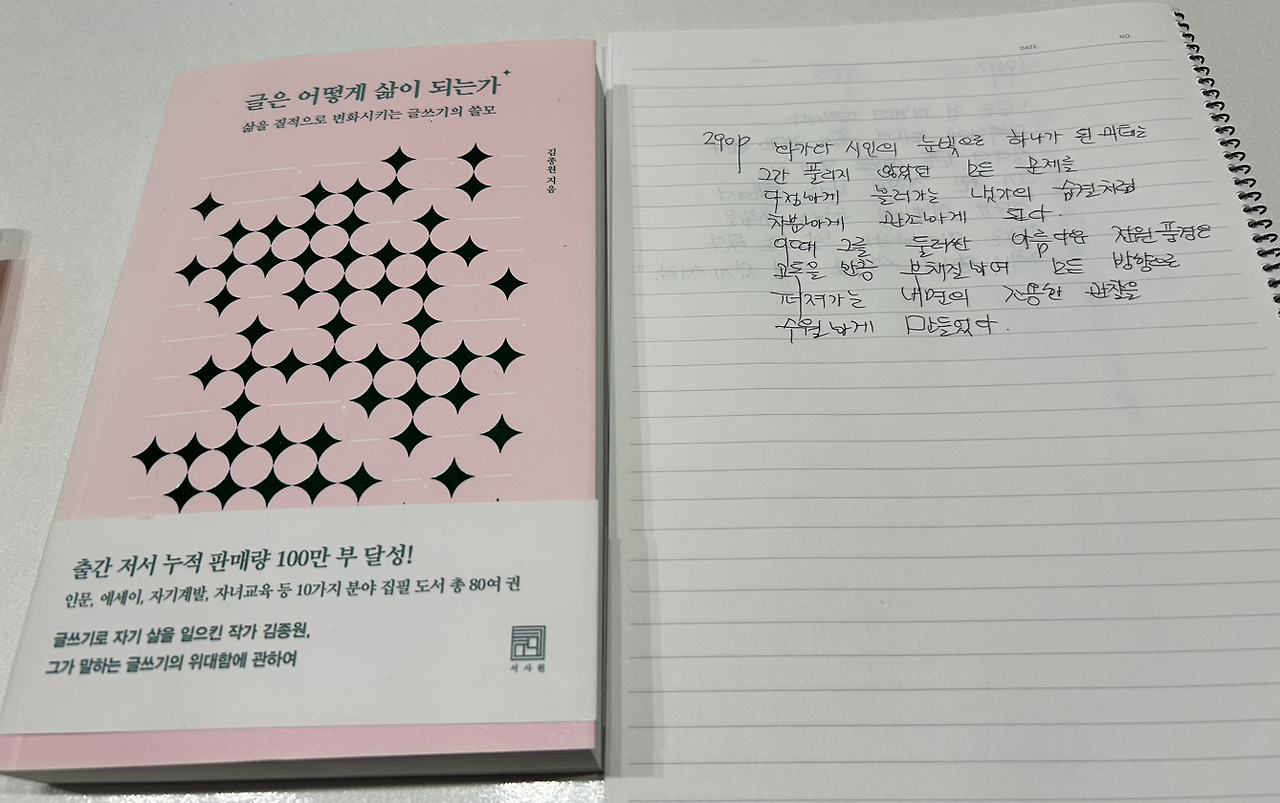 글은 어떻게 삶이 되는가
삶을 질적으로 변화시키는 글쓰기의 쓸모
김종원 지음
출간 저서 누적 판매량 100만 부 달성!
인문, 에세이, 자기계발, 자녀교육 등 10가지 분야 집필 도서 총 80여 권
글쓰기로 자기 삶을 일으킨 작가 김종원,
그가 말하는 글쓰기의 위대함에 관하여
서사원
DATE.
NO.
290p. 시인의 눈빛으로 하나가 된
그간 풀리지 않았던 모든 문제를
다정하게 불러가는 숨결처럼
차분하게 관조하게 된다.
이때 그를 둘러싼 아름다운 전원 풍경은
고독을 한층 부채질하여 모든 방향으로
퍼져가는 내면의 조용한 관찰을
수월하게 만들었다.